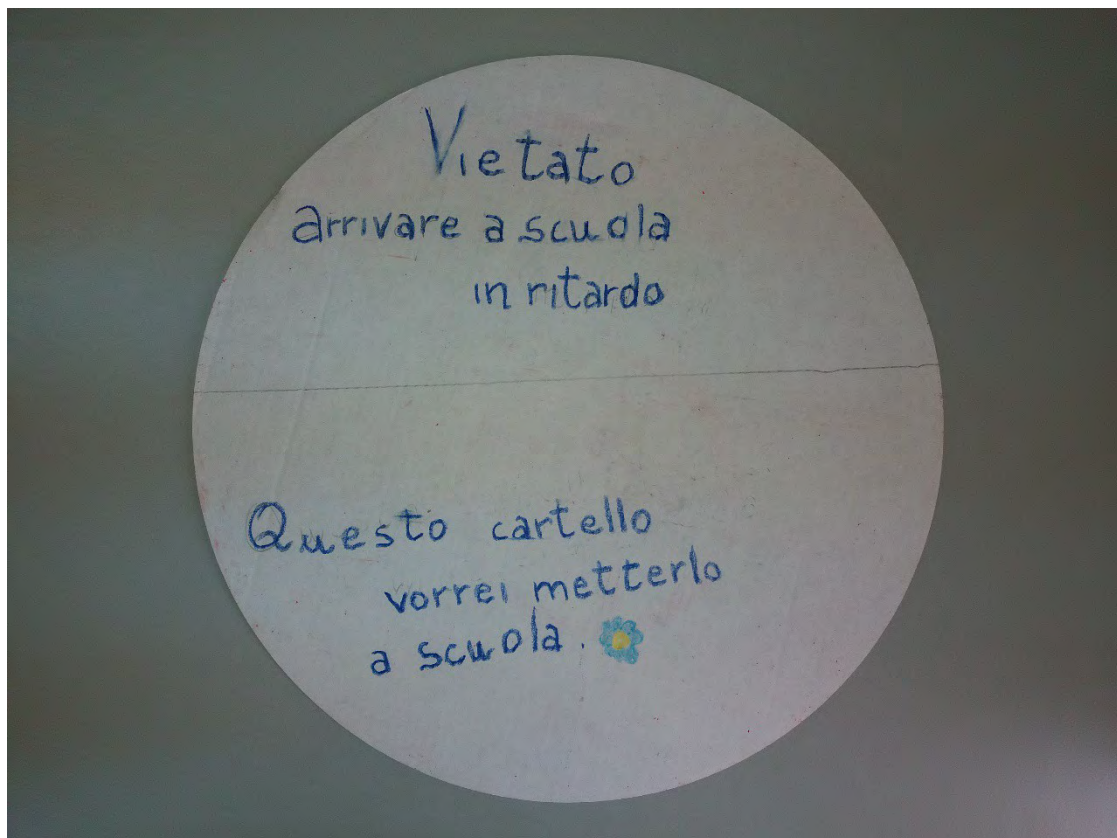 Vietato
arrivare a scuola
in ritardo
Questo cartello
vorrei metterlo
a scuola.